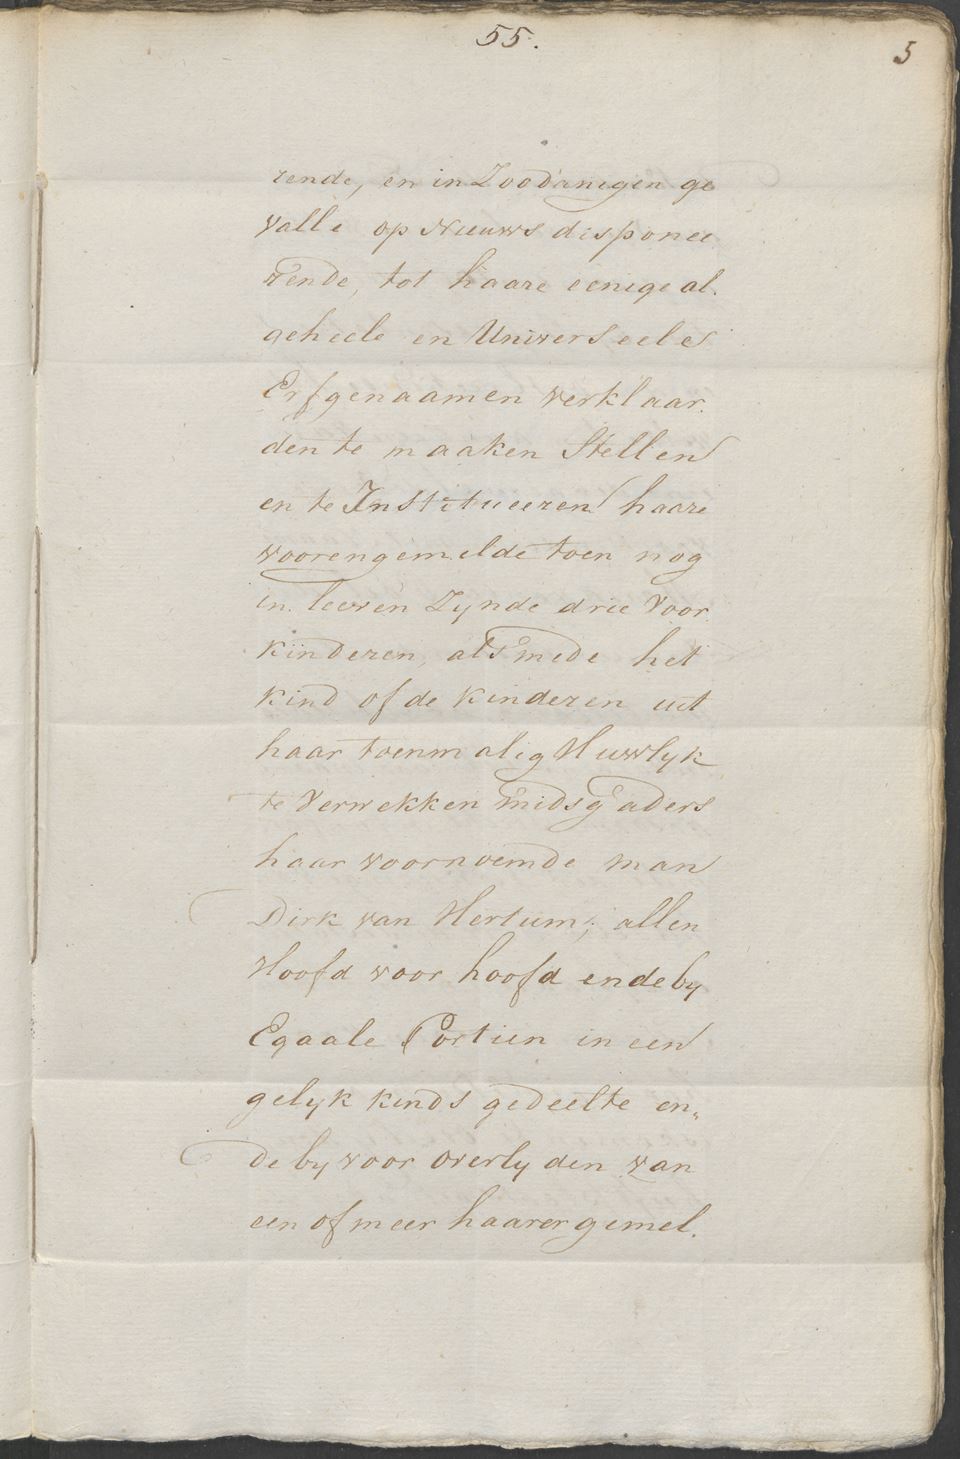 55.
5
rende, en in Zoodanigen ge
valle op Nieuws disponee
rende, tot haare eenige al.
geheele en Universeele
Erfgenaamen verklaar.
den te maaken Stellen
en te Institueeren haare
voorengemelde toen nog
in leeven Zynde drie Voor
kinderen, alsmede het
kind of de kinderen uit
haar toenmalig Huwlyk
te Verwekken midsgaders
haar voornoemde man
Dirk van Hertum; allen
Hoofd voor hoofd ende by
Egaale Portien in een
gelyk kinds gedeelte en„
de by voor overlyden van
een of meer haarer gemel.